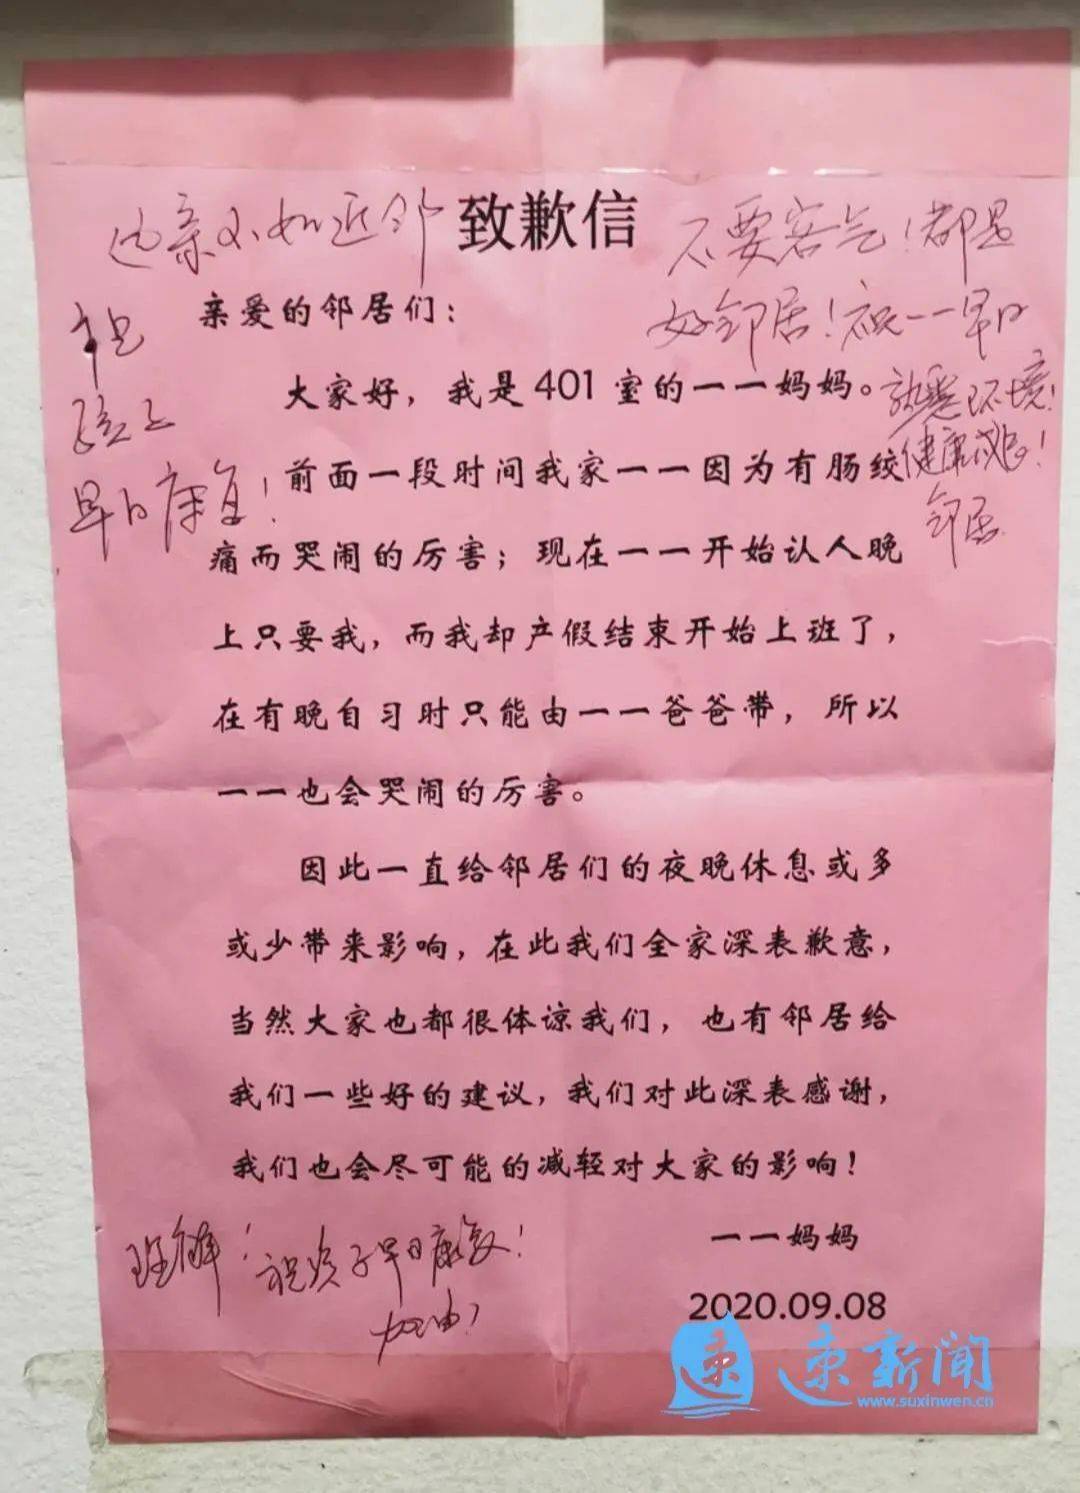 远亲不如近邻
致歉信
不要客气！都是
好邻居！祝一一早日
熟悉环境！
健康成长！
邻居
祝
孩子
早日康复！
亲爱的邻居们：
大家好，我是401室的一一妈妈。
前面一段时间我家一一因为有肠绞
痛而哭闹的厉害；现在一一开始认人晚
上只要我，而我却产假结束开始上班了，
在有晚自习时只能由一一爸爸带，所以
一一也会哭闹的厉害。
因此一直给邻居们的夜晚休息或多
或少带来影响，在此我们全家深表歉意，
当然大家也都很体谅我们，也有邻居给
我们一些好的建议，我们对此深表感谢，
我们也会尽可能的减轻对大家的影响！
一一妈妈
2020.09.08
理解！祝孩子早日康复！
加油！
速新闻
www.suxinwen.cn